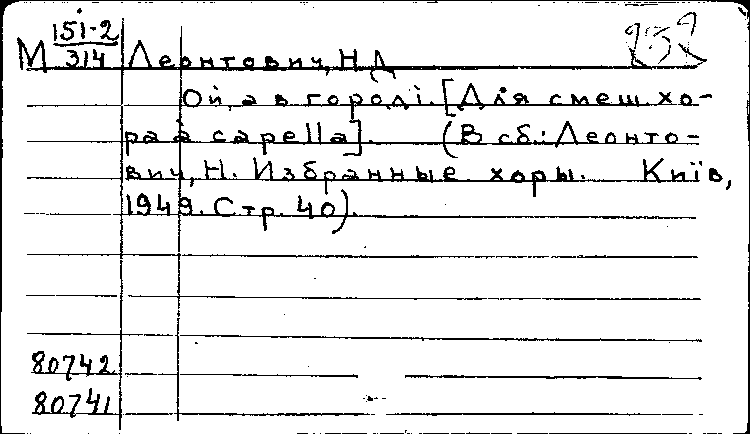 М 151-2/314 Леонтович, Н Д
Ой, а в городі. [Для смеш. хо-
ра а capella]. (В сб.: Леонто-
вич, Н. Избранные хоры. Київ,
1949. Стр. 40).
80742
80741